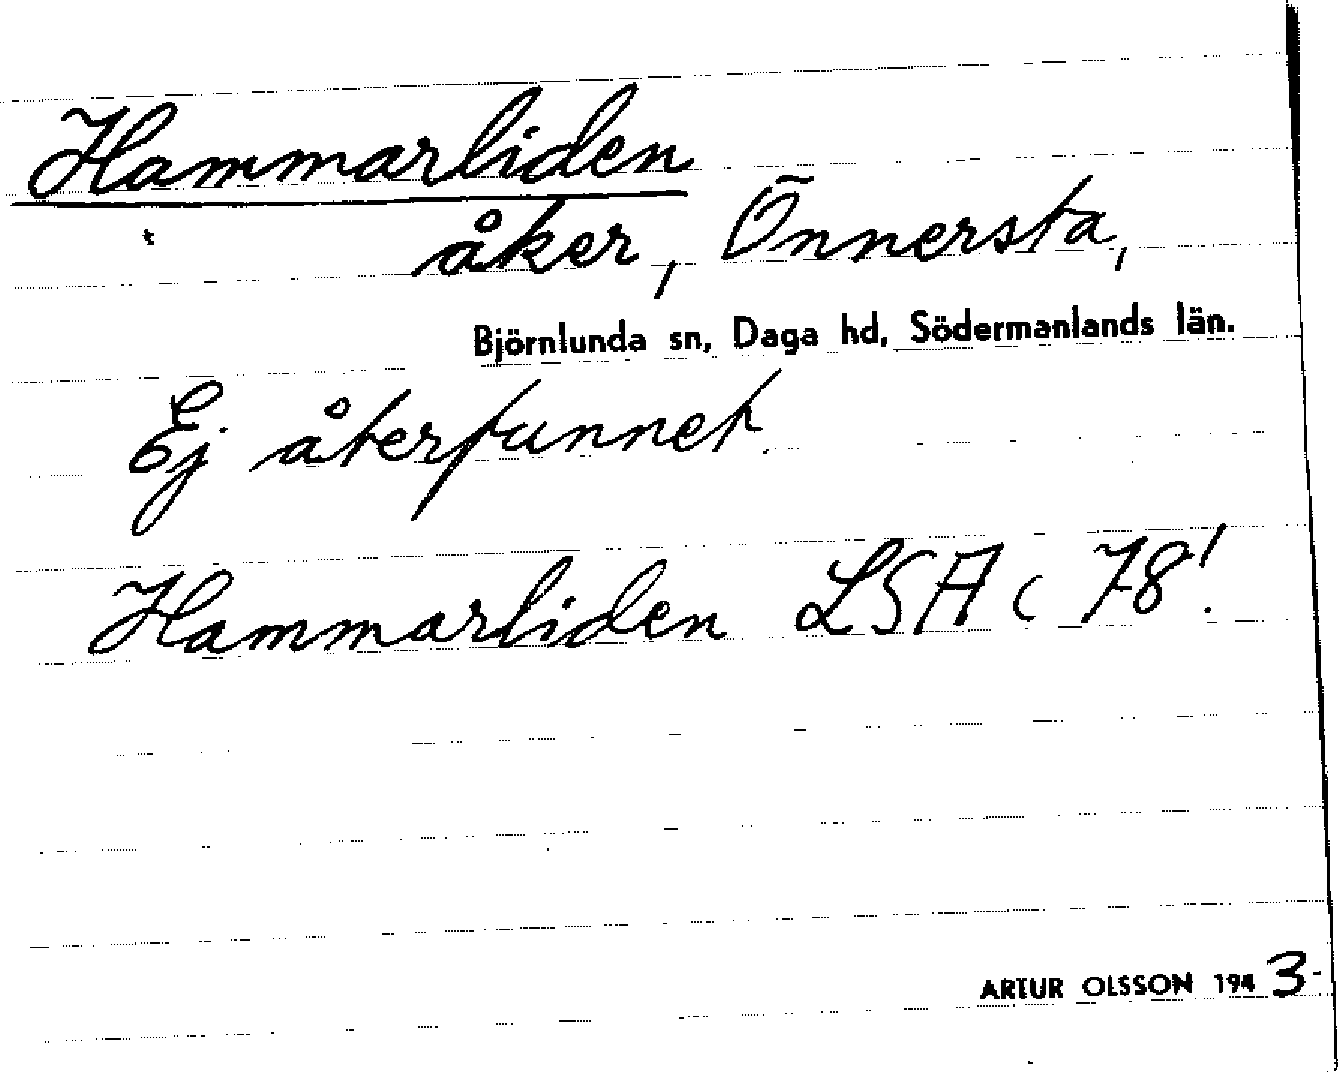 Hammarliden
åker, Önnersta,
Björnlunda sn, Daga hd, Södermanlands län.
Ej återfunnet.
Hammarliden LSA c 78!
ARTUR OLSSON 1943